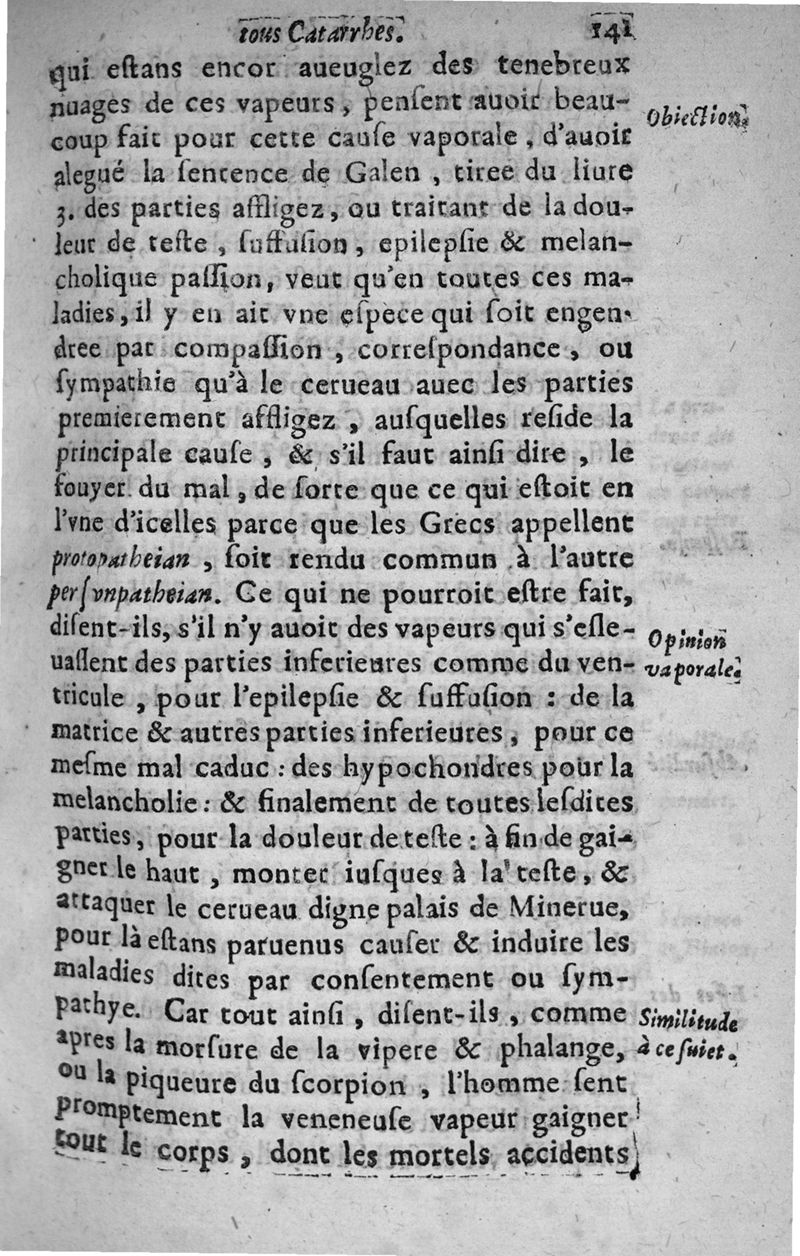 tous Catarrhes. 141
qui eſtans encor aueuglez des tenebreux
nuages de ces vapeurs, penſent auoir beau-
coup fait pour cette cauſe vaporale, d'auoir
alegué la ſentence de Galen, tiree du liure
3. des parties affligez, ou traitant de la dou-
leur de teſte, ſuffuſion, epilepſie & melan-
cholique paſſion, veut qu'en toutes ces ma-
ladies, il y en ait vne eſpece qui ſoit engen-
dree par compaſſion, correſpondance, ou
ſympathie qu'à le cerueau auec les parties
premierement affligez, auſquelles reſide la
principale cauſe, & s'il faut ainſi dire, le
fouyer du mal, de ſorte que ce qui eſtoit en
l'vne d'icelles parce que les Grecs appellent
protopatheian, ſoit rendu commun à l'autre
perſvnpatheian. Ce qui ne pourroit eſtre fait,
diſent-ils, s'il n'y auoit des vapeurs qui s'eſle-
uaſſent des parties inferieures comme du ven-
tricule, pour l'epilepſie & ſuffuſion : de la
matrice & autres parties inferieures, pour ce
meſme mal caduc : des hypochondres pour la
melancholie : & finalement de toutes leſdites
parties, pour la douleur de teſte : à fin de gai-
gner le haut, monter iuſques à la teſte, &
attaquer le cerueau digne palais de Minerue,
pour là eſtans paruenus cauſer & induire les
maladies dites par conſentement ou ſym-
pathye. Car tout ainſi, diſent-ils, comme
apres la morſure de la vipere & phalange,
ou la piqueure du ſcorpion, l'homme ſent
promptement la veneneuſe vapeur gaigner
tout le corps, dont les mortels accidents
Obiection.
Opinion
vaporale.
Similitude
à ce ſuiet.